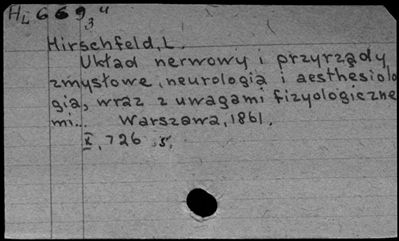 HL 669 3 4
Hirschfeld, L.
Układ nerwowy i przyrządy
zmysłowe, neurologia i aesthesiolo
gia, wraz z uwagami fizyologiczne
mi... Warszawa, 1861.
X, 726 s.